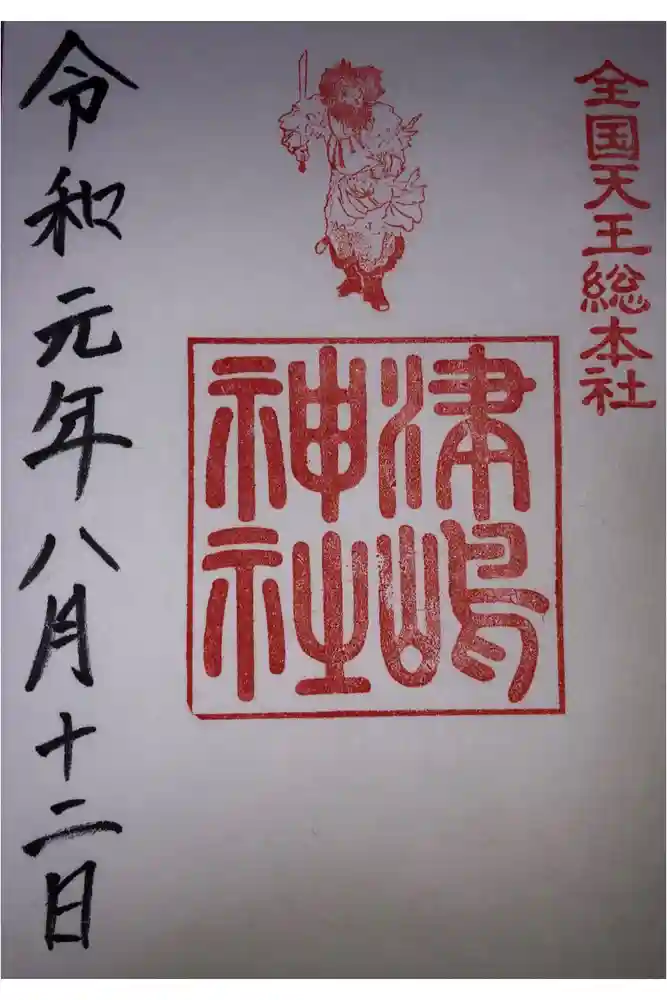 全国天王総本社
津嶋神社
令和元年八月十二日